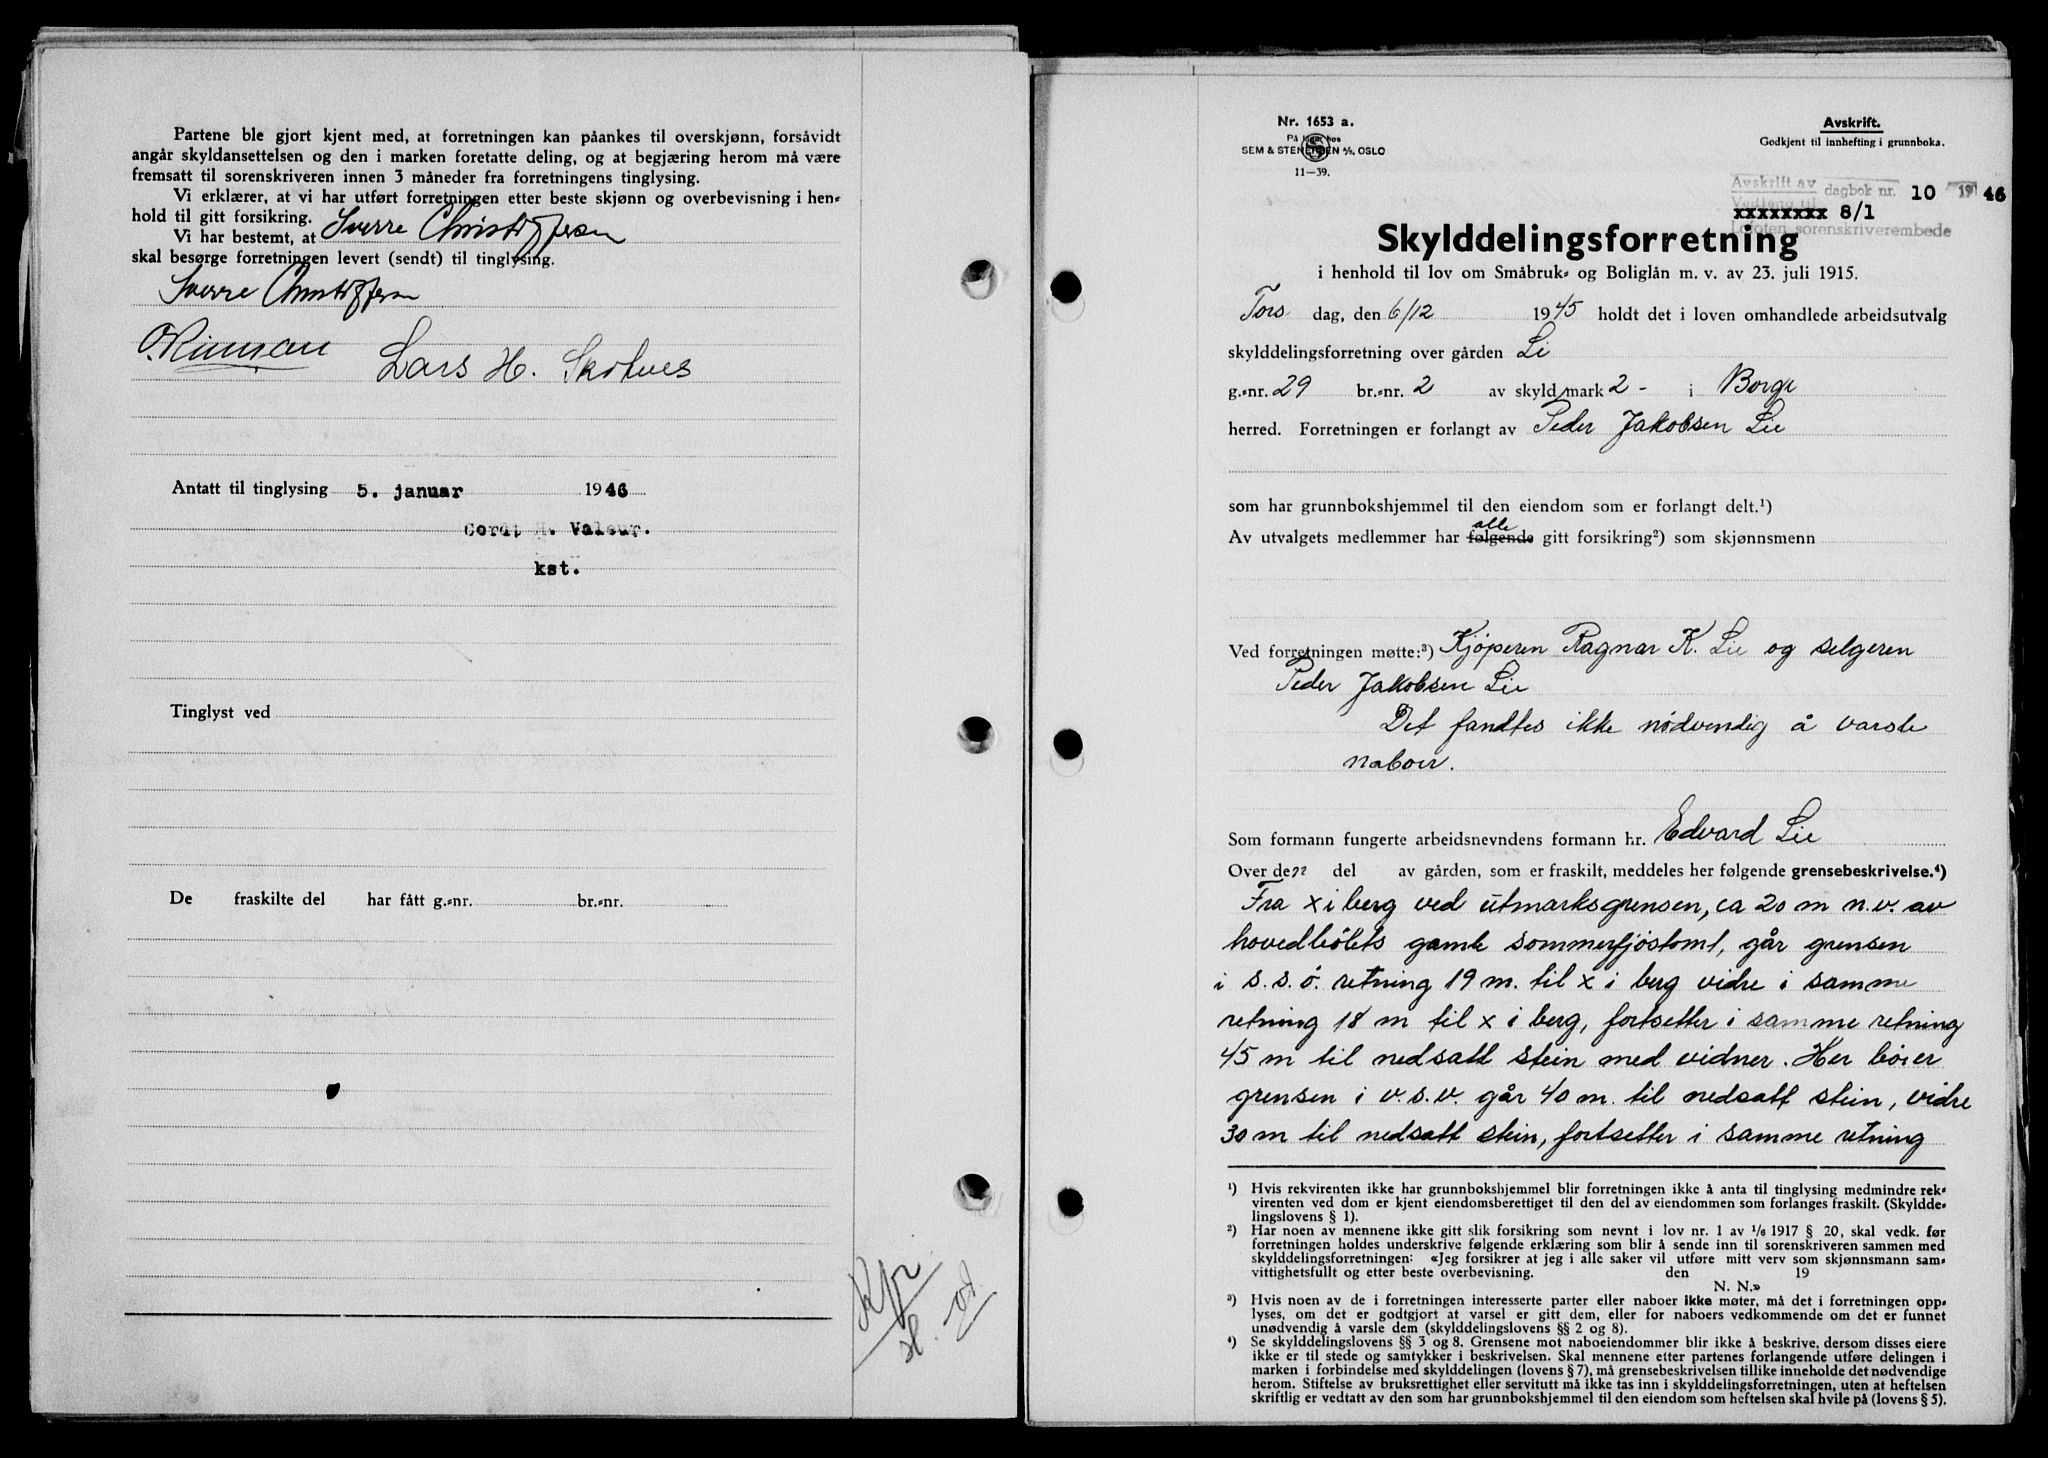 Partene ble gjort kjent med, at forretningen kan påankes til overskjønn, forsåvidt
angår skyldansettelsen og den i marken foretatte deling, og at begjæring herom må være
fremsatt til sorenskriveren innen 3 måneder fra forretningens tinglysing.
Vi erklærer, at vi har utført forretningen etter beste skjønn og overbevisning i hen-
hold til gitt forsikring.
Vi har bestemt, at Sverre Christoffersen
skal besørge forretningen levert (sendt) til tinglysing.
Sverre Christoffersen
Lars H. Skotnes
Antatt til tinglysing 5. januar 1946
Cordt H. Valeur.
kst.
Tinglyst ved
De fraskilte del har fått g.-nr. br.-nr.
Nr. 1653 a.
På lager hos
SEM & STENERSEN A/S, OSLO
11—39.
Avskrift.
Godkjent til innhefting i grunnboka.
Avskrift av dagbok nr. 10 1946
Vedlegg til
xxxxxxxx 8/1
Lofoten sorenskriverembede
Skylddelingsforretning
i henhold til lov om Småbruk- og Boliglån m. v. av 23. juli 1915.
Tors dag, den 6/12 1945 holdt det i loven omhandlede arbeidsutvalg
skylddelingsforretning over gården Li
g.-nr. 29 br.-nr. 2 av skyld mark 2 - i Borge
herred. Forretningen er forlangt av Peder Jakobsen Lie
som har grunnbokshjemmel til den eiendom som er forlangt delt.¹)
Av utvalgets medlemmer har følgende alle gitt forsikring²) som skjønnsmenn
Ved forretningen møtte:³) Kjøperen Ragnar K. Lie og selgeren
Peder Jakobsen Lie
Det fandtes ikke nødvendig å varsle
naboer.
Som formann fungerte arbeidsnevndens formann hr. Edvard Lie
Over den del av gården, som er fraskilt, meddeles her følgende grensebeskrivelse.⁴)
Fra x i berg ved utmarksgrensen, ca 20 m n.v. av
hovedbølets gamle sommerfjøstomt, går grensen
i s.s.ø. retning 19 m. til x i berg vidre i samme
retning 18 m til x i berg, fortsetter i samme retning
45 m til nedsatt stein med vidner. Her bøier
grensen i v.s.v. går 40 m. til nedsatt stein, vidre
30 m til nedsatt stein, fortsetter i samme retning
¹) Hvis rekvirenten ikke har grunnbokshjemmel blir forretningen ikke å anta til tinglysing medmindre rek-
virenten ved dom er kjent eiendomsberettiget til den del av eiendommen som forlanges fraskilt. (Skyldde-
lingslovens § 1).
²) Har noen av mennene ikke gitt slik forsikring som nevnt i lov nr. 1 av 1/6 1917 § 20, skal vedk. før
forretningen holdes underskrive følgende erklæring som blir å sende inn til sorenskriveren sammen med
skylddelingsforretningen: «Jeg forsikrer at jeg i alle saker vil utføre mitt verv som skjønnsmann sam-
vittighetsfullt og etter beste overbevisning. den 19
N. N.»
³) Hvis noen av de i forretningen interesserte parter eller naboer ikke møter, må det i forretningen opp-
lyses, om det er godtgjort at varsel er gitt dem, eller for naboers vedkommende om det er funnet
unødvendig å varsle dem (skylddelingslovens §§ 2 og 8).
⁴) Se skylddelingslovens §§ 3 og 8. Grensene mot naboeiendommer blir ikke å beskrive, dersom disses eiere
ikke er til stede og samtykker i beskrivelsen. Skal mennene etter partenes forlangende utføre delingen i
marken i forbindelse med skylddelingen (lovens § 7), må grensebeskrivelsen tillike inneholde det nødvendige
herom. Stiftelse av bruksrettighet eller servitutt må ikke tas inn i skylddelingsforretningen, uten at heftelsen
skriftlig er vedtatt av den som har grunnbokshjemmel til den eiendom som heftelsen skal hvile på (lovens § 5).